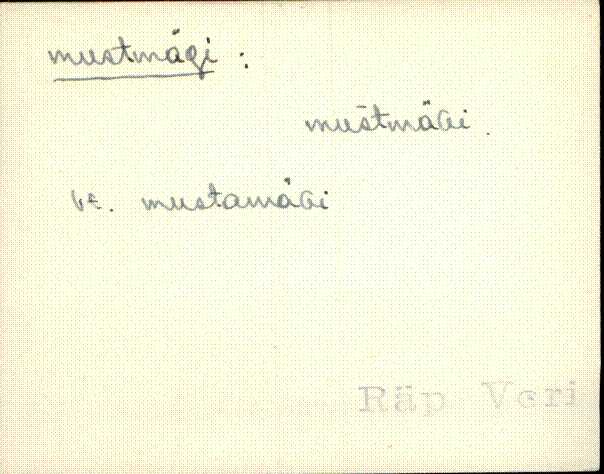 mustmägi :
mūstmäGi.
vt. mustamäGi
Räp Veri